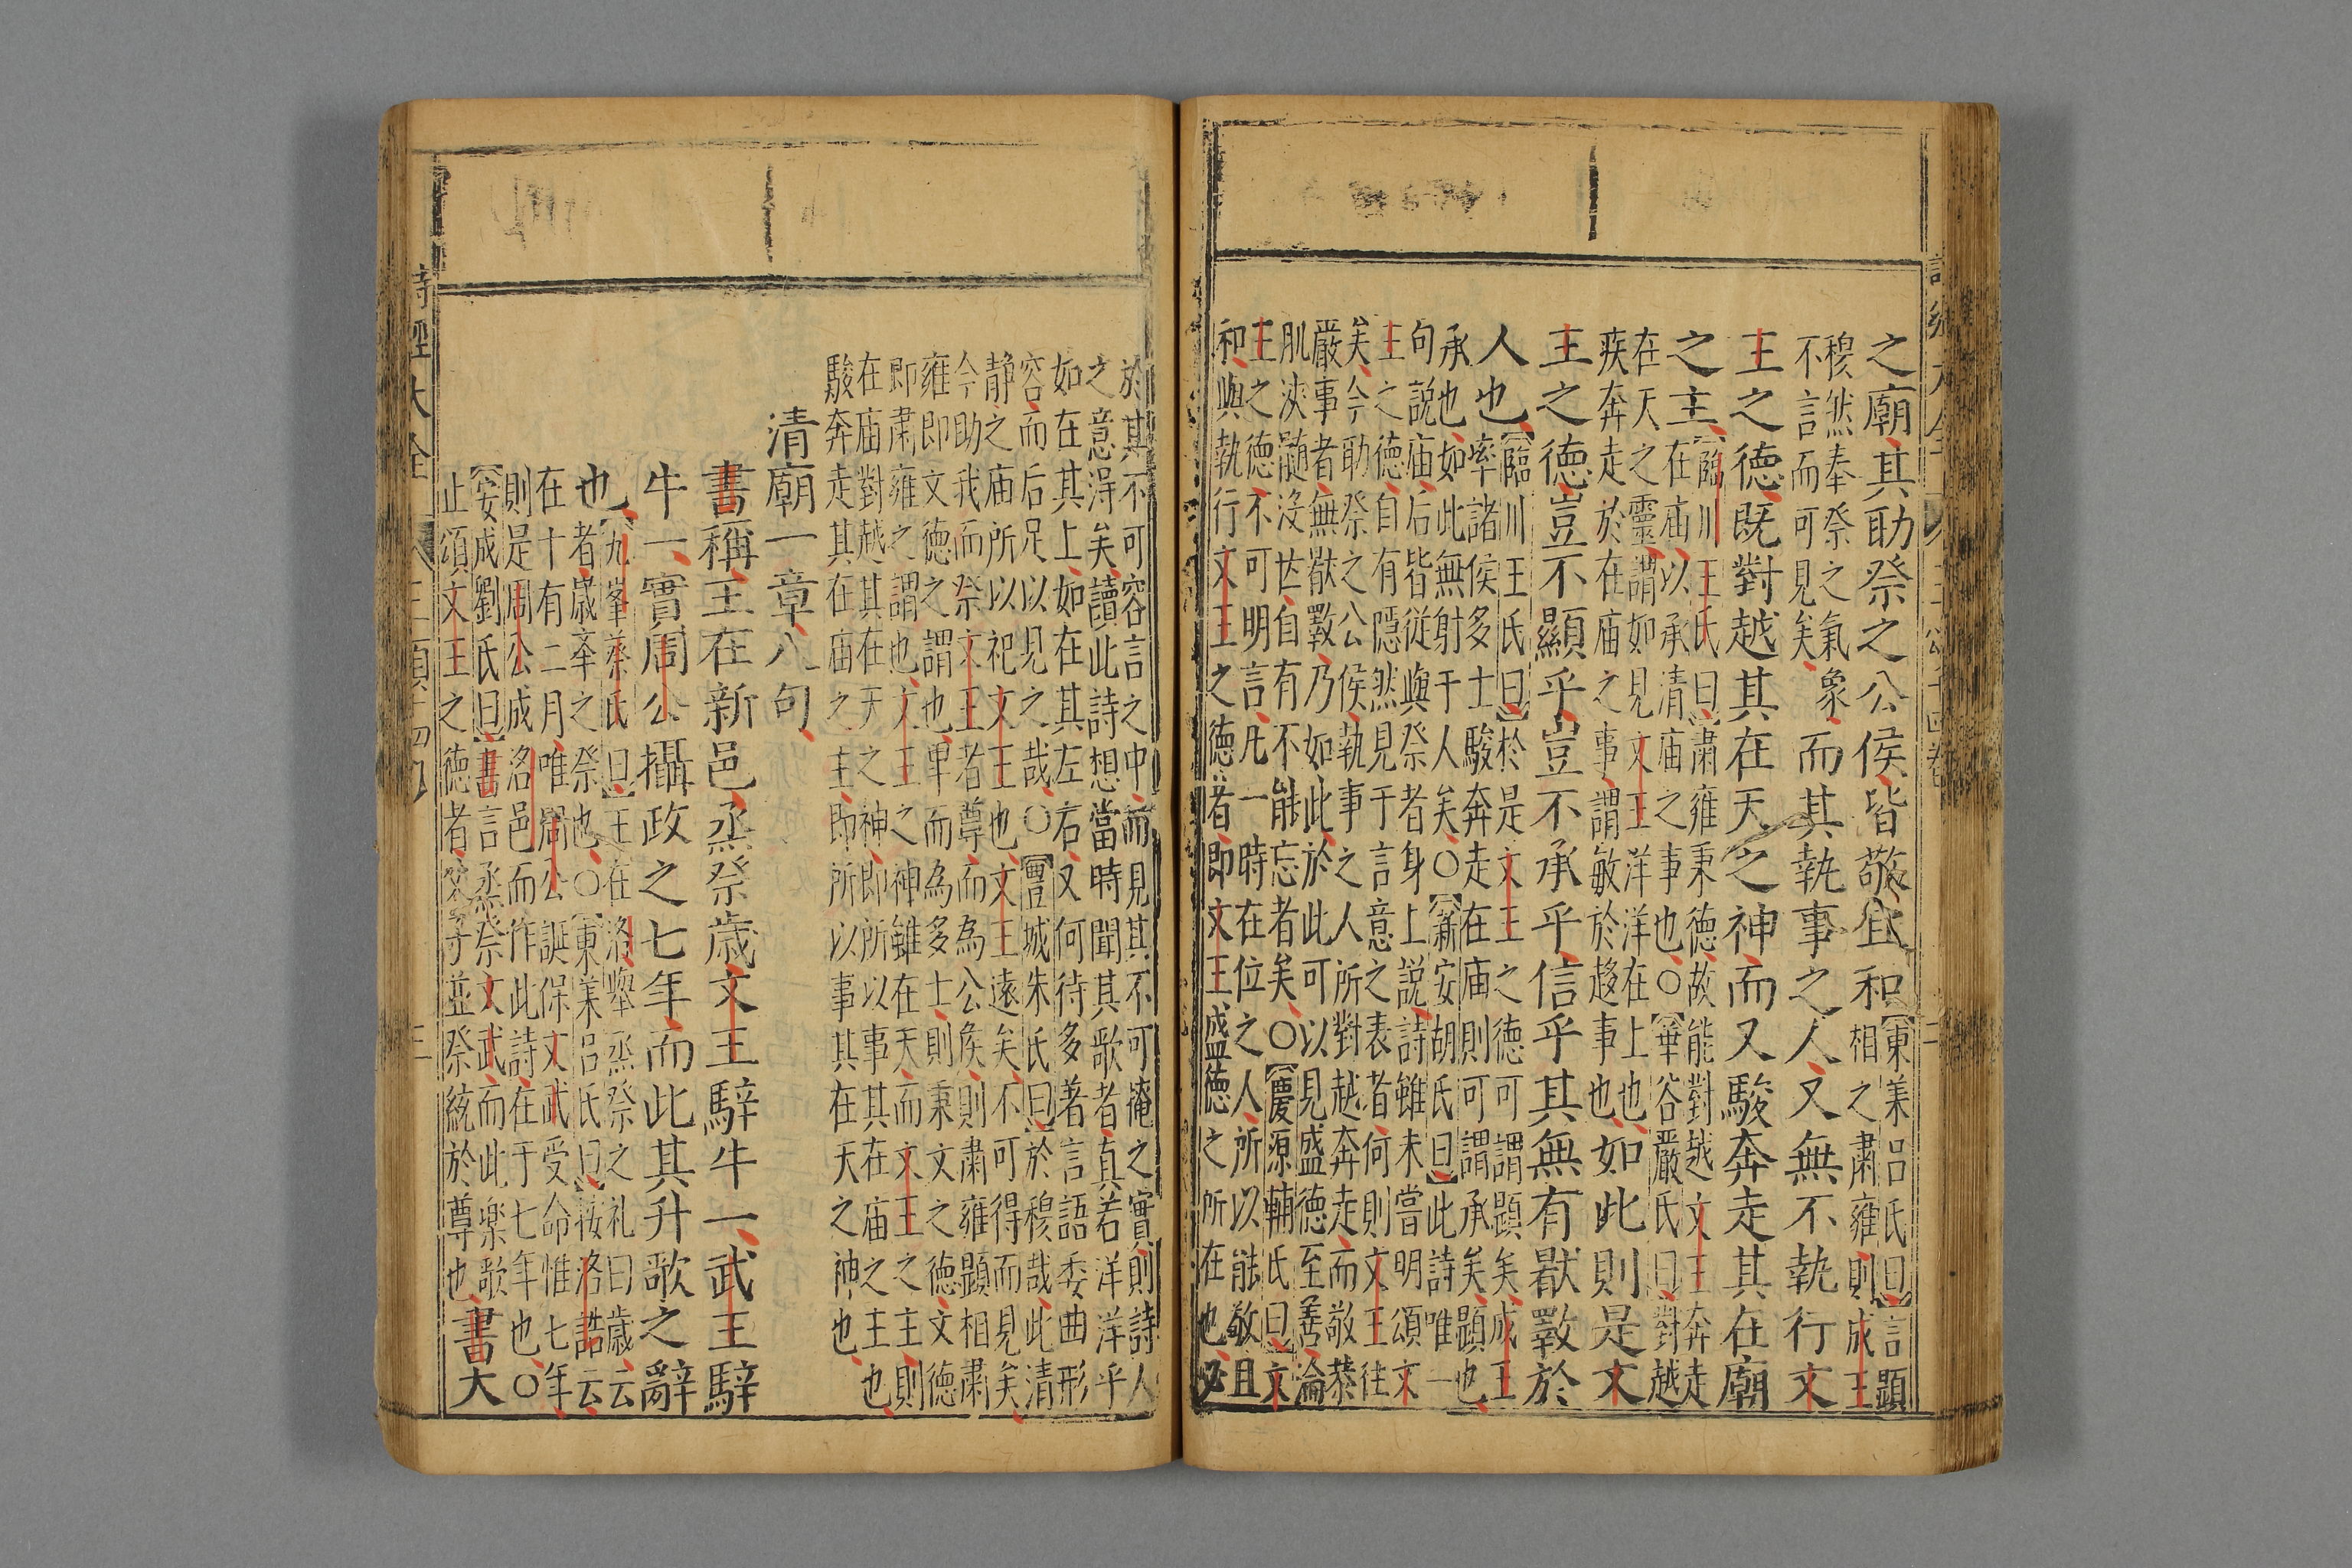 之廟其助祭之公侯皆敬宜和東萊呂氏曰言顕
相之肅雍則成王
穆然奉祭之氣象
不言而可見矣而其執事之人又無不執行文
王之德既對越其在天之神而又駿奔走其在廟
之主臨川王氏曰肅雍秉德故能對越文王奔走
在庙以承清庙之事也○華谷嚴氏曰對越
在天之靈謂如見文王洋洋在上也
疾奔走於在庙之事謂敏於趍事也如此則是文
王之德豈不顯乎豈不承乎信乎其無有厭斁於
人也臨川王氏曰於是文王之德可謂顕矣成王
率諸侯多士駿奔走在庙則可謂承矣顕也
承也如此無射于人矣○新安胡氏曰此詩唯一
句説庙后皆從與祭者身上説詩雖未嘗明頌文
王之德自有隱然見于言意之表者何則文王往
矣今助祭之公侯執事之人所對越奔走而敬恭
嚴事者無猒斁乃如此於此可以見盛德至善淪
肌浹髄沒世自有不能忘者矣○慶源輔氏曰文
王之德不可明言凡一時在位之人所以能敬且
和與執行文王之德者即文王盛德之所在也必
於其不可容言之中而見其不可掩之實則詩人
之意淂矣讀此詩想當時聞其歌者真若洋洋乎
如在其上如在其左右又何待多著言語委曲形
容而后足以見之哉○豐城朱氏曰於穆哉此清
静之庙所以祀文王也文王遠矣不可得而見矣
今助我而祭文王者尊而為公侯則肅雍顕相肅
雍即文德之謂也卑而為多士則秉文之德文德
即肅雍之謂也文王之神雖在天而文王之主則
在庙對越其在天之神即所以事其在庙之主也
駿奔走其在庙之主即所以事其在天之神也
清廟一章八句
書稱王在新邑烝祭歳文王騂牛一武王騂
牛一實周公攝政之七年而此其升歌之辭
也九峯蔡氏曰王在洛舉烝祭之礼曰歳云
者歳举之祭也○東萊呂氏曰按洛誥云
在十有二月唯周公誕保文武受命惟七年
則是周公成洛邑而作此詩在于七年也○
安成劉氏曰書言烝祭文武而此樂歌
止頌文王之德者父子並祭統於尊也書大
詩經大全